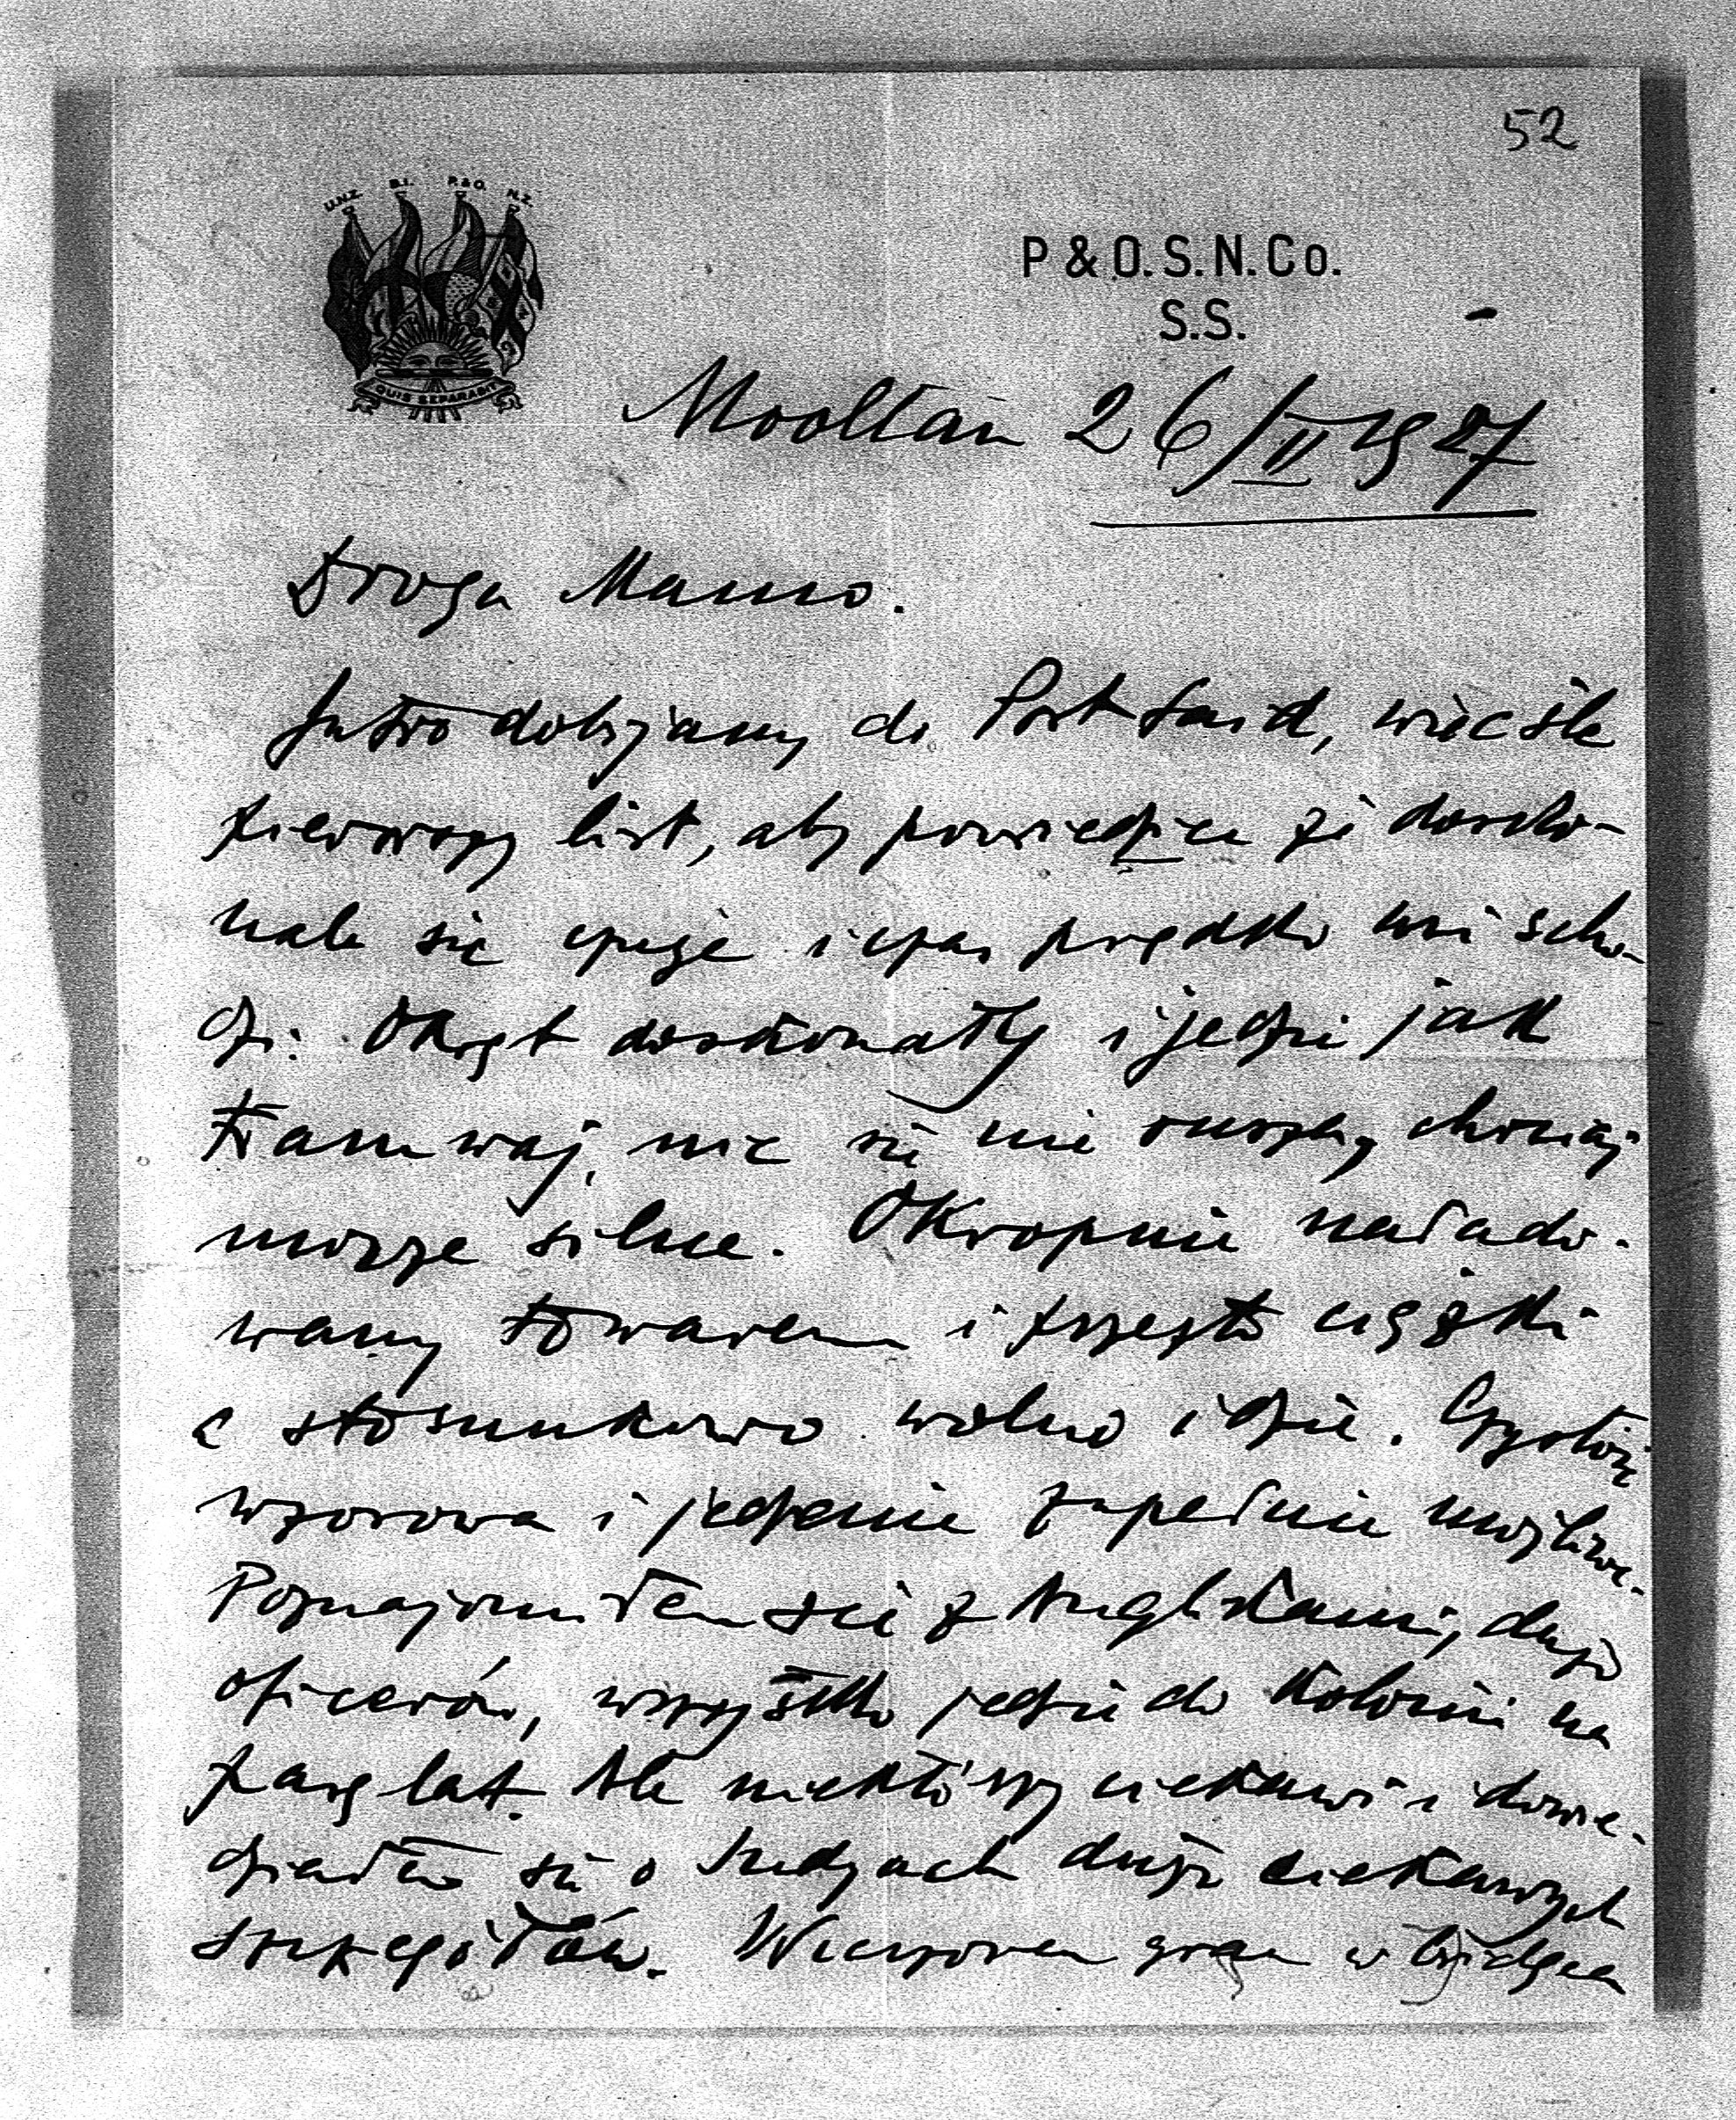 52
U.N.Z. B.I. P.&O. N.Z.
QUIS SEPARABIT
P & O. S. N. Co.
S.S.
Mooltan 26/II 1927
Droga Mamo.
Jutro dobijamy do Port Said, więc śle
pierwszy list, aby powiedzieć że dosko-
nale się czuję i czas prędko mi scho-
dzi. Okręt doskonały i jedzie jak
tramwaj, nic się nie ruszy chociaż
morze silne. Okropnie nałado-
wany towarem i przezto ciężki
a stosunkowo wolno idzie. Czystość
wzorowa i jedzenie zupełnie możliwe.
Poznajomiłem się z Anglikami, dużo
oficerów, wszystko jedzie do kolonii na
parę lat. Ale niektórzy ciekawi i dowie-
działem się o Indjach dużo ciekawych
szczegółów. Wieczorem gram w bridgea